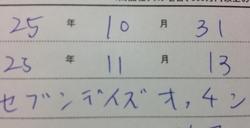 25 年 10 月 31
25 年 11 月 13
セブンデイズオ,チン